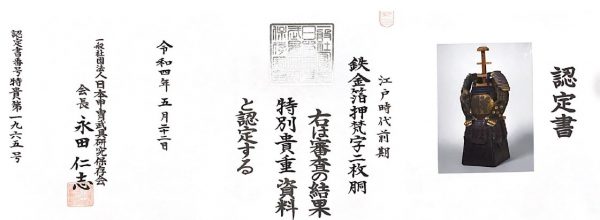 認定書
江戸時代前期
鉄金箔押梵字二枚胴
右は審査の結果
特別貴重資料
と認定する
令和四年五月二十二日
一般社団法人日本甲冑武具研究保存会
会長 永田仁志
認定書番号特貴第一九六五号